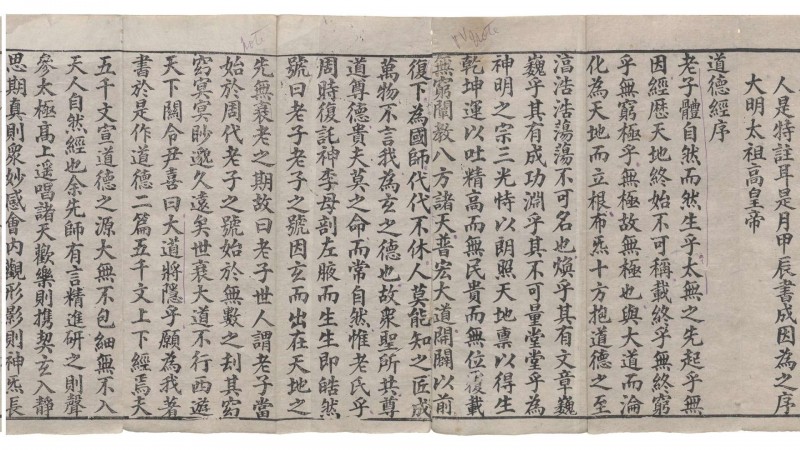 人是特註耳是月甲辰書成因為之序
大明太祖高皇帝
道德經序
老子體自然而然生乎太無之先起乎無
因經歷天地終始不可稱載終乎無終窮
乎無窮極乎無極故無極也與大道而淪
化為天地而立根布炁十方抱道德之至
淳浩浩蕩蕩不可名也煥乎其有文章巍
巍乎其有成功淵乎其不可量堂堂乎為
神明之宗三光恃以朗照天地稟以得生
乾坤運以吐精高而無民貴而無位覆載
無窮闡教八方諸天普宏大道開闢以前
復下為國師代代不休人莫能知之匠成
萬物不言我為玄之德也故衆聖所共尊
道尊德貴夫莫之命而常自然惟老氏乎
周時復託神李母剖左腋而生生即皓然
號曰老子老子之號因玄而出在天地之
先無衰老之期故曰老子世人謂老子當
始於周代老子之號始於無數之刦其窈
窈冥冥眇邈久遠矣世衰大道不行西遊
天下關令尹喜曰大道將隱乎願為我著
書於是作道德二篇五千文上下經焉夫
五千文宣道德之源大無不包細無不入
天人自然經也余先師有言精進研之則聲
參太極高上遥唱諸天歡樂則携契玄入靜
思期真則衆妙感會内觀形影則神炁長
note